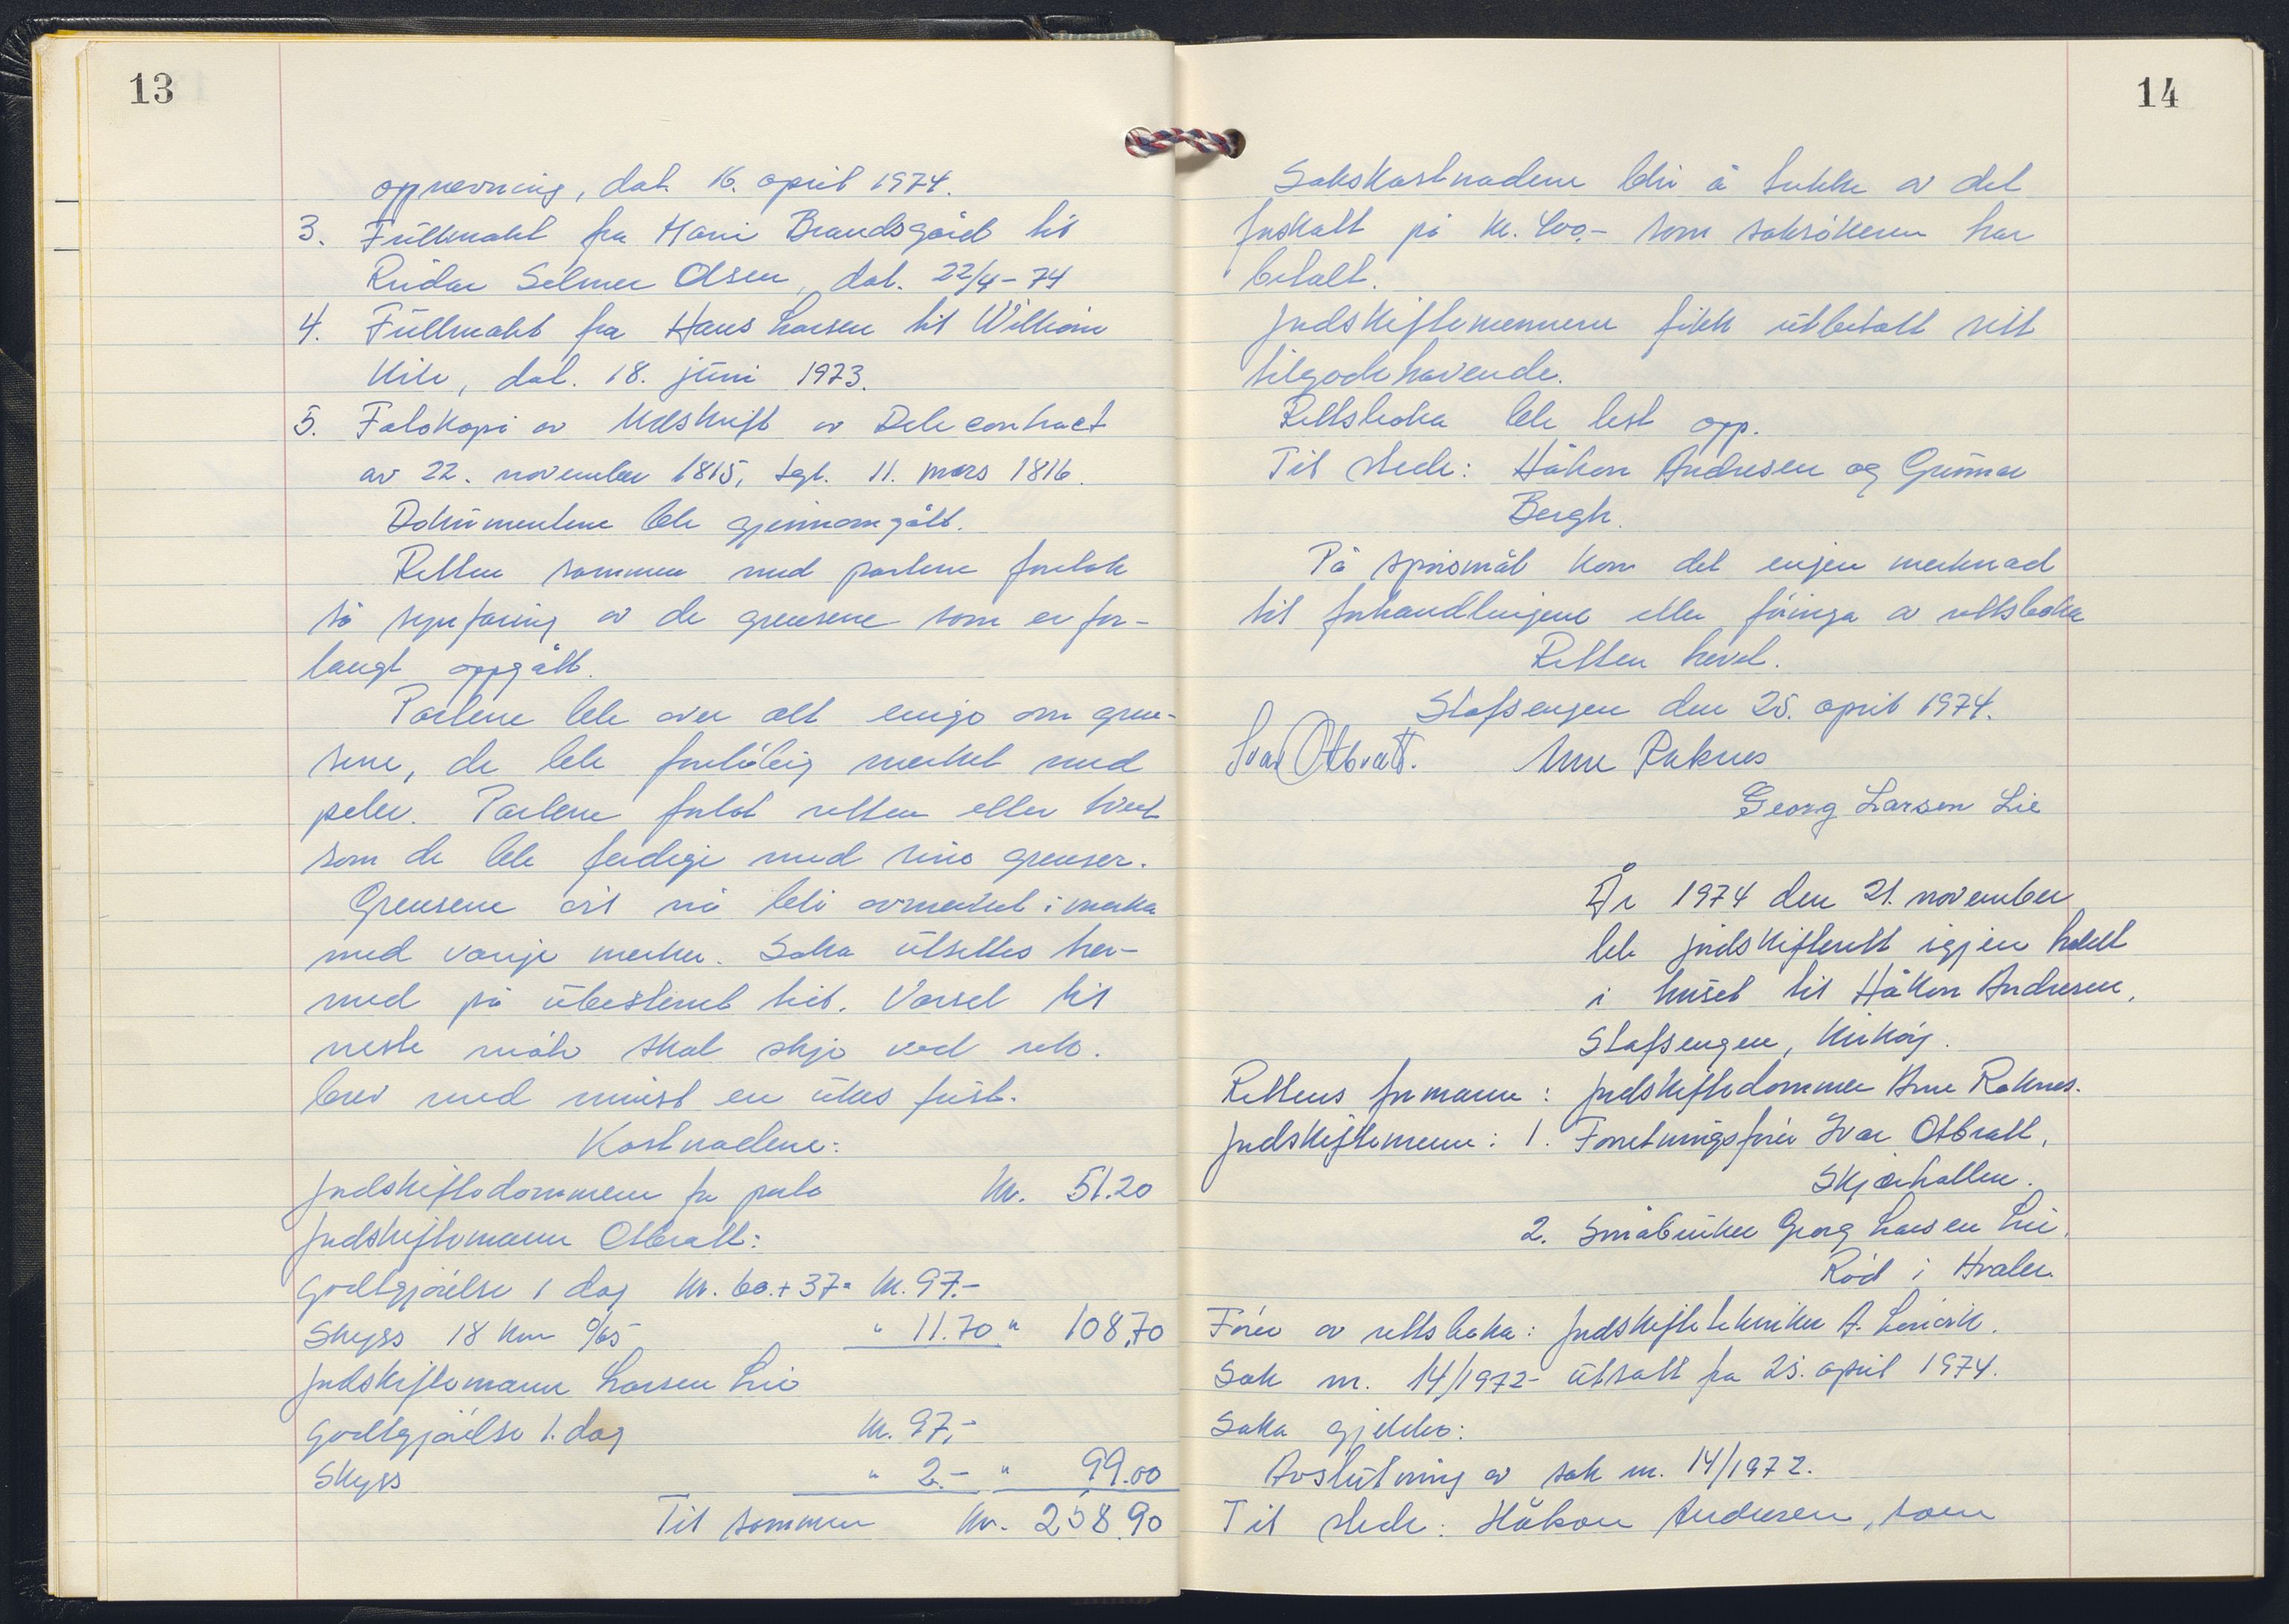 13
oppnevning, dat. 16. april 1974.
3. Fullmakt fra Mari Brandsgård til
Reidar Selmer Olsen, dat. 22/4-74
4. Fullmakt fra Hans Larsen til William
Kile, dat. 18. juni 1973.
5. Fotokopi av Utskrift av Delecontract
av 22. november 1815, tgl. 11. mars 1816.
Dokumentene ble gjennomgått.
Retten sammen med partene foretok
så synfaring av de grensene som er for-
langt oppgått.
Partene ble over alt enige om gren-
sene, de ble foreløbig merket med
peler. Partene forlot retten etter hvert
som de ble ferdige med sine grenser.
Grensene vil nå bli avmerket i marka
med varige merker. Saka utsettes her-
med på ubestemt tid. Varsel til
neste møte skal skje ved rek.
brev med minst en ukes frist.
Kostnadene:
Jordskiftedommeren for porto kr. 51.20
Jordskiftemann Otbratt:
Godtgjørelse 1 dag kr. 60.+37= kr. 97.-
Skyss 18 km 0/65 " 11.70 " 108,70
Jordskiftemann Larsen Lie
Godtgjørelse 1. dag kr. 97,-
Skyss " 2.- " 99.00
Til sammen kr. 258.90
14
Sakskostnadene blir å trekke av det
forskott på kr. 400,- som saksøkeren har
betalt.
Jordskiftemennene fikk utbetalt sitt
tilgodehavende.
Rettsboka ble lest opp.
Til stede: Håkon Andresen og Gunnar
Bergh.
På spørsmål kom det ingen merknad
til forhandlingene eller føringa av rettsboka
Retten hevet.
Stafsengen den 25. april 1974.
Ivar Otbratt. Arne Raknes
Georg Larsen Lie
År 1974 den 21. november
ble jordskifterett igjen holdt
i huset til Håkon Andresen,
Stafsengen, Kirkøy.
Rettens formann: Jordskiftedommer Arne Raknes.
Jordskiftemenn: 1. Forretningsfører Ivar Otbratt,
Skjærhallen.
2. Småbruker Georg Larsen Lie,
Rød i Hvaler.
Fører av rettsboka: Jordskiftetekniker A.
Sak nr. 14/1972- utsatt fra 25. april 1974.
Saka gjelder:
Avslutning av sak nr. 14/1972.
Til stede: Håkon Andresen, som